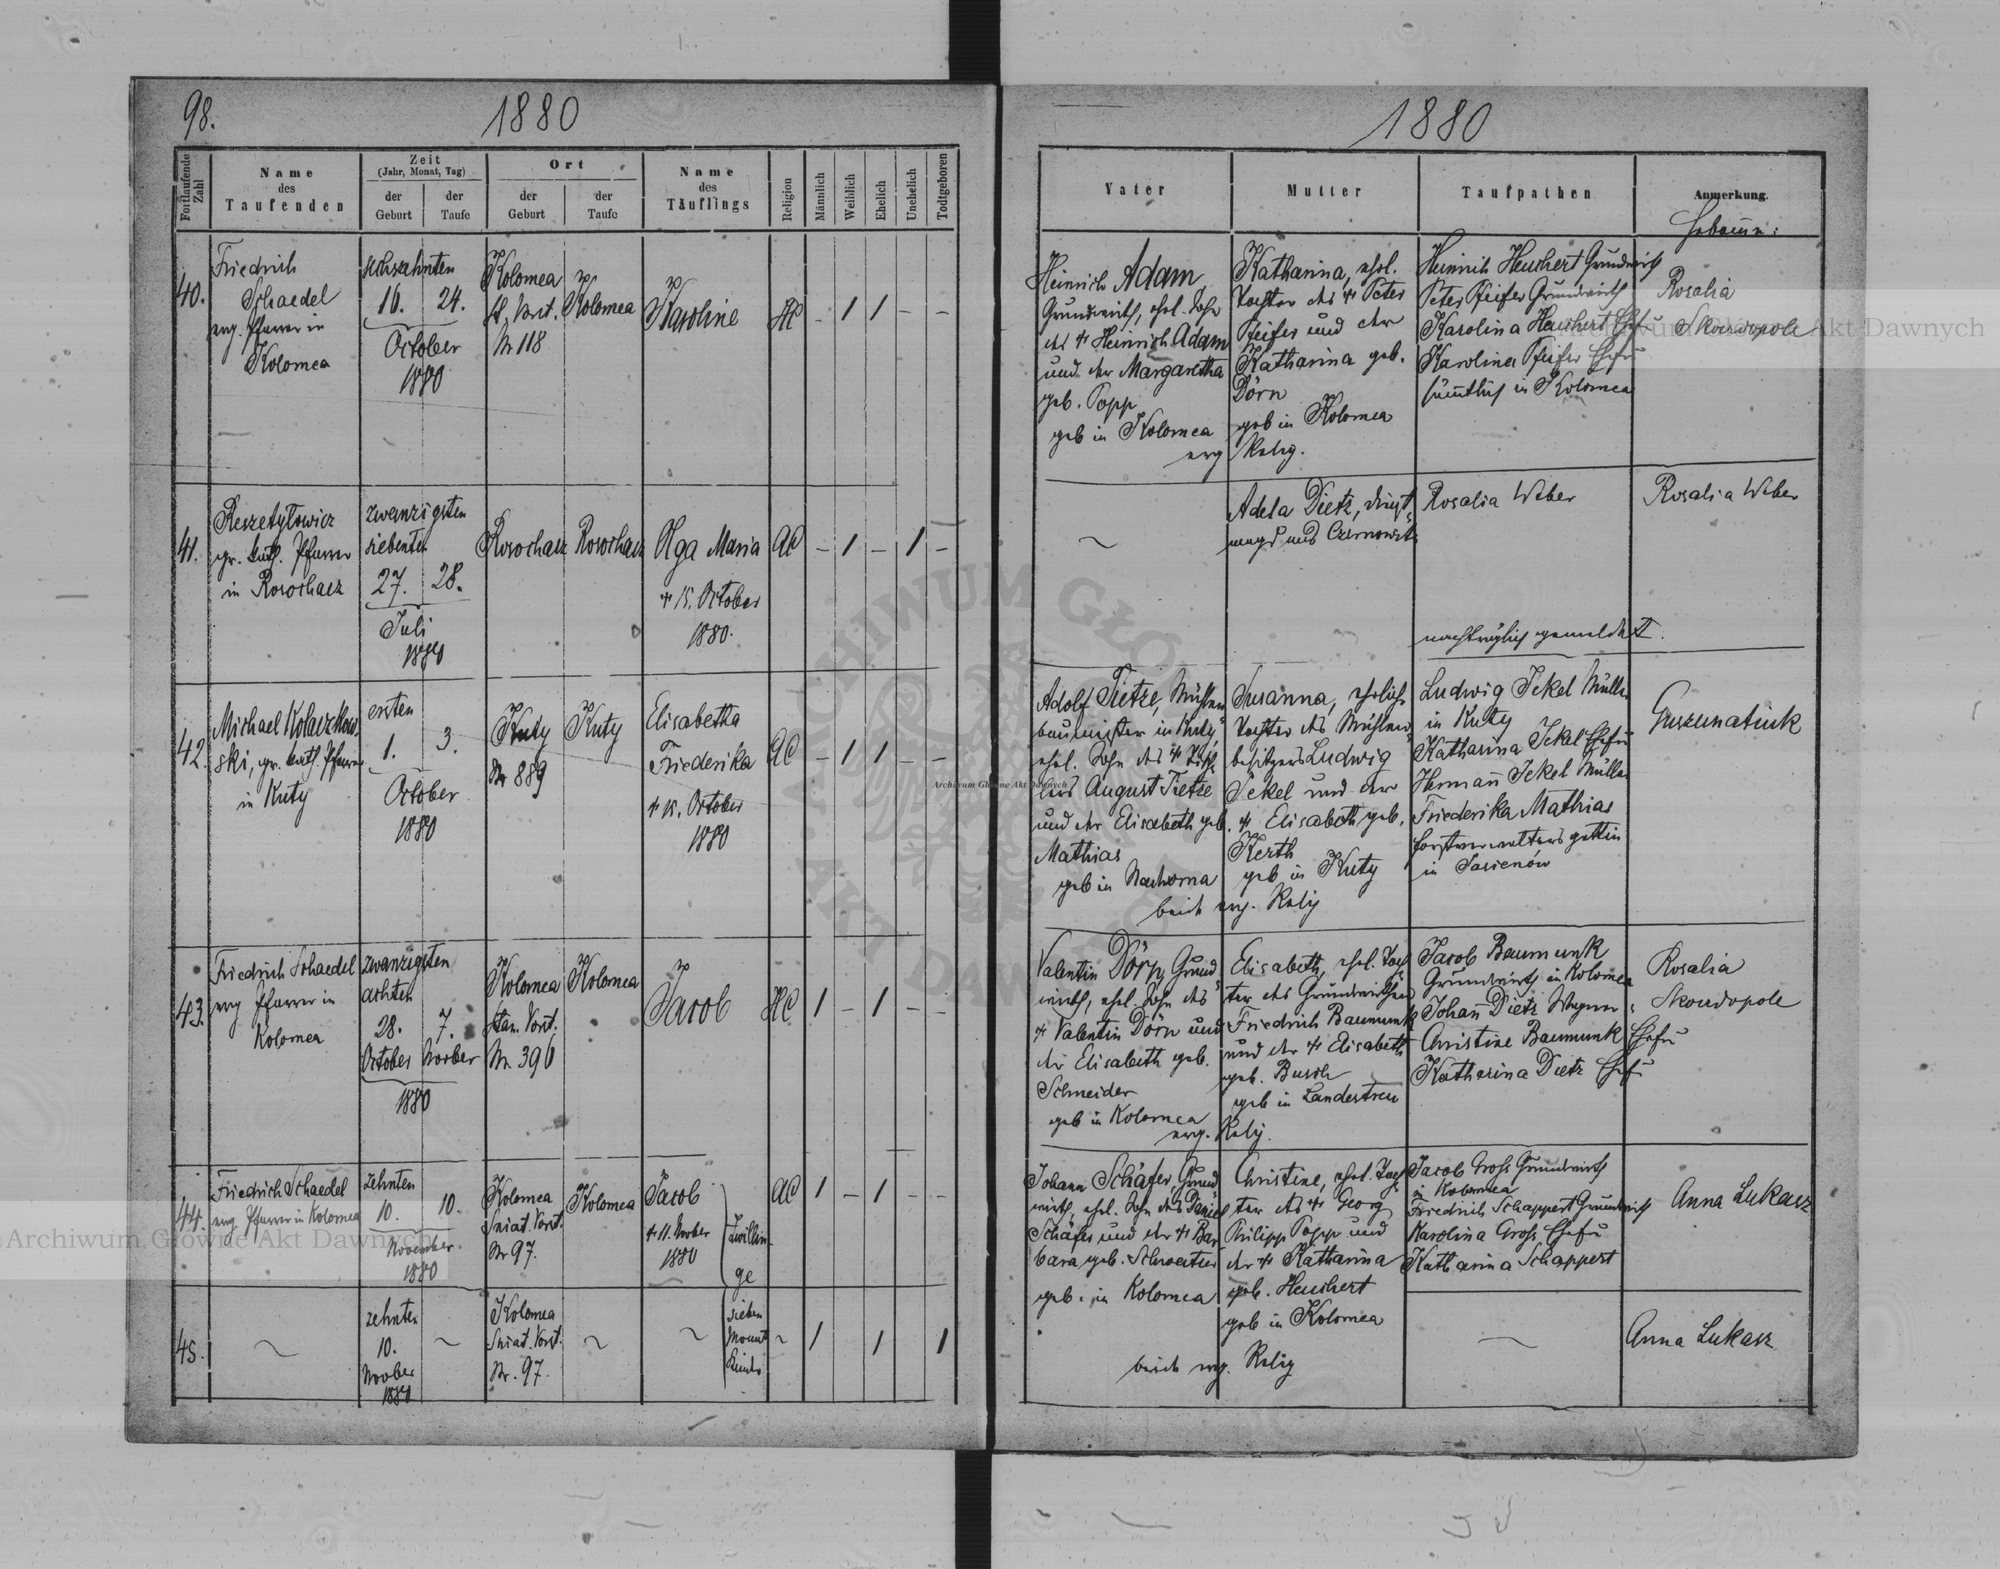 98.
1880
Fortlaufende Zahl
Name
des
Taufenden
Zeit
(Jahr, Monat, Tag)
der
Geburt
der
Taufe
Ort
der
Geburt
der
Taufe
Name
des
Täuflings
Religion
Männlich
Weiblich
Ehelich
Unehelich
Todtgeboren
40.
Friedrich
Schaedel
evg. Pfarrer in
Kolomea
sechszehnten
16. 24.
October
1880
Kolomea
Vorst.
Nr 118
Kolomea
Karoline
HC
– 1 1 – –
41.
Reszetylowicz
gr. kath. Pfarrer
in Rosochacz
zwanzigsten
siebenten
27. 28.
Juli
1880
Rosochacz
Rosochacz
Olga Maria
+ 15. October
1880.
AC
– 1 – 1 –
42.
Michael Kolaczkow-
ski, gr. kath. Pfarrer
in Kuty
ersten
1. 3.
October
1880
Kuty
Nr 889
Kuty
Elisabetha
Friederika
+ 15. October
1880
AC
– 1 1 – –
43.
Friedrich Schaedel
evg Pfarrer in
Kolomea
zwanzigsten
achten
28. 7.
October Novber
1880
Kolomea
Stan. Vorst.
Nr. 396
Kolomea
Jacob
HC
1 – 1 – –
44.
Friedrich Schaedel
evg. Pfarrer in Kolomea
zehnten
10. 10.
November.
1880
Kolomea
Sniat. Vorst.
Nr 97.
Kolomea
Jacob
+ 11. Novber
1880
Zwillin-
ge
AC
1 – 1 – –
45.
~
zehnten
10.
Novber
1880
~
Kolomea
Sniat. Vorst.
Nr. 97.
~
~
sieben
Monat
Kinder
~
1 1 1
1880
Vater
Mutter
Taufpathen
Anmerkung.
Hebamme:
Heinrich Adam,
Grundwirth, ehel. Sohn
des + Heinrich Adam
und der Margaretha
geb. Popp
geb in Kolomea
Katharina, ehel.
Tochter des + Peter
Pfeifer und der
Katharina geb.
Dörn
geb in Kolomea
evg Relig.
Heinrich Heuchert Grundwirth
Peter Pfeifer Grundwirth
Karolina Heuchert Ehefr
Karolina Pfeifer Ehefr
sämtlich in Kolomea
Rosalia
Skordopole
~
Adela Dietz, Dienst-
magd aus Czernowitz
Rosalia Weber
nachträglich gemeldet.
Rosalia Weber
Adolf Tietze, Mühlen-
baumeister in Kuty,
ehel. Sohn des + Tisch-
lers August Tietze
und der Elisabeth geb.
Mathias
geb in Nadworna
Susanna, eheliche
Tochter des Mühlen-
besitzers Ludwig
Jekel und der
+ Elisabeth geb.
Kerth
geb in Kuty
beide evg. Relig
Ludwig Jekel Müller
in Kuty
Katharina Jekel Ehefr
Hermañ Jekel Müller
Friederika Mathias
Forstverwaltersgattin
in Jasienów
Guszenatiuk
Valentin Dörn Grund-
wirth, ehel. Sohn des
+ Valentin Dörn und
der Elisabeth geb.
Schneider
geb in Kolomea
Elisabeth, ehel. Toch-
ter des Grundwirthen
Friedrich Baumunk
und der + Elisabeth
geb. Busch
geb in Landestreu
evg. Relig.
Jacob Baumunk
Grundwirth in Kolomea
Johañ Dietz Wagner
Christine Baumunk Ehefr
Katharina Dietz Ehefr
Rosalia
Skordopole
Johann Schäfer, Grund-
wirth, ehel. Sohn des Daniel
Schäfer und der + Bar-
bara geb. Schwertner
geb. in Kolomea
Christine, ehel. Toch-
ter des + Georg
Philipp Popp und
der + Katharina
geb. Heuchert
geb in Kolomea
beide evg. Relig
Jacob Gross Grundwirth
in Kolomea
Friedrich Schappert Grundwirth
Karolina Gross Ehefr
Katharina Schappert
~
Anna Lukasz
Anna Lukasz
Archiwum Główne Akt Dawnych
Archiwum Główne Akt Dawnych
Archiwum Główne Akt Dawnych
ARCHIWUM GŁÓWNE AKT DAWNYCH